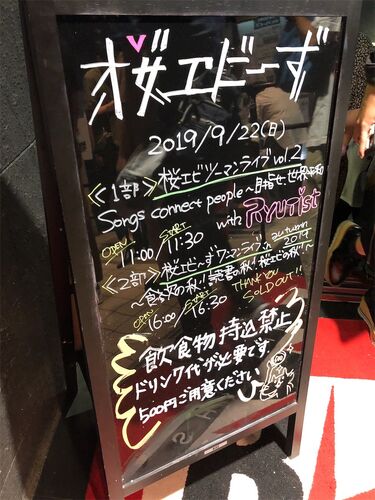 桜エビ〜ず
2019/9/22(日)
<1部>桜エビツーマンライブ vol.2
Songs connect people〜目指せ、世界平和
with RYUTist
OPEN START
11:00/11:30
<2部>桜エビ〜ずワンマンライブ autumn 2019
〜食欲の秋!読書の秋!桜エビの秋!〜
OPEN START THANK YOU
16:00/16:30 SOLD OUT!!
飲食物持込禁止
ドリンク代が必要です
500円ご用意ください